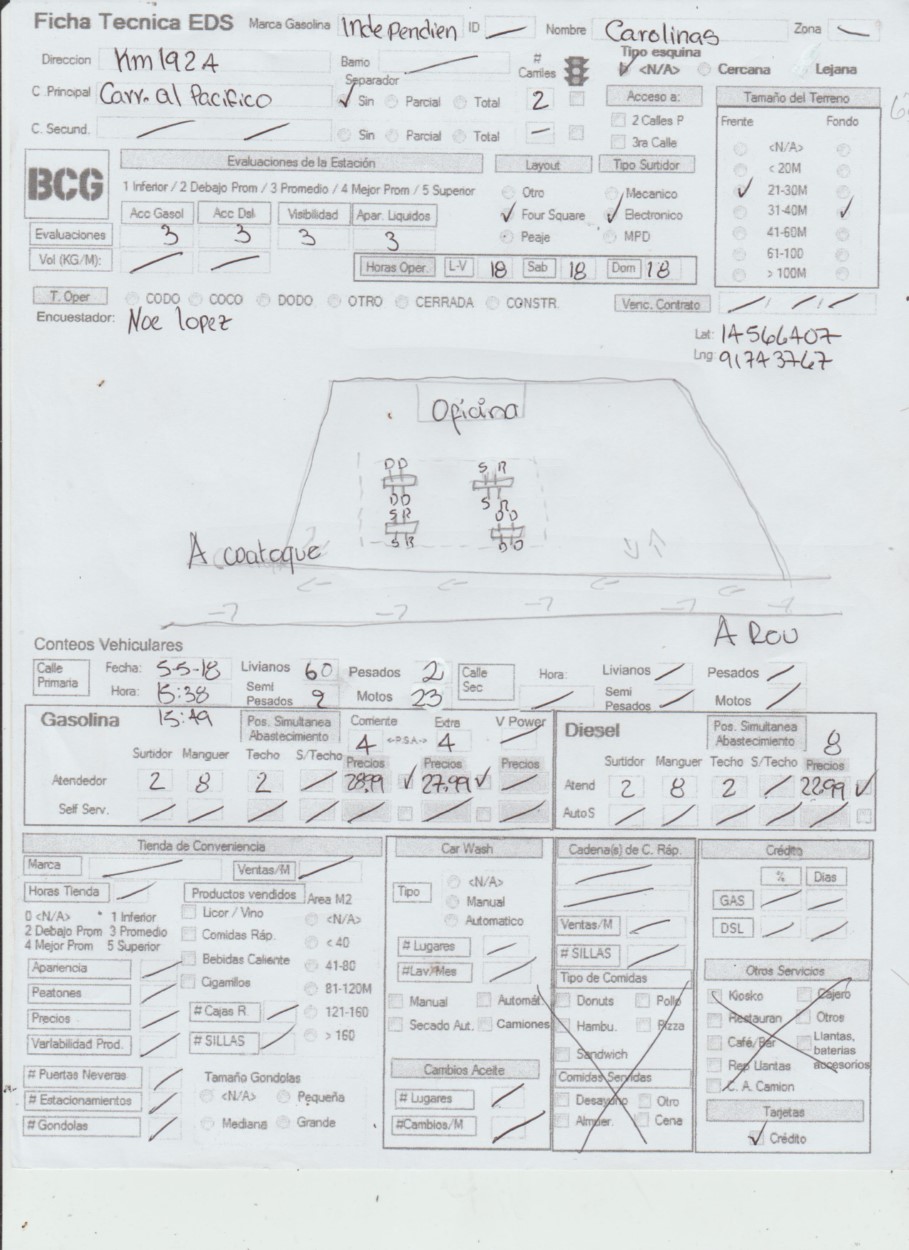 Ficha Tecnica EDS Marca Gasolina Independien ID — Nombre Carolinas Zona —
Direccion Km 192 A Barrio — # Carriles Tipo esquina <N/A> Cercana Lejana
C .Principal Carr. al Pacifico Separador Sin Parcial Total 2 Acceso a: Tamaño del Terreno
C. Secund. — — Sin Parcial Total — 2 Calles P Frente Fondo
3ra Calle <N/A>
BCG Evaluaciones de la Estación Layout Tipo Surtidor < 20M
1 Inferior / 2 Debajo Prom / 3 Promedio / 4 Mejor Prom / 5 Superior Otro Mecanico 21-30M
Acc Gasol Acc Dsl Visibilidad Apar. Liquidos Four Square Electronico 31-40M
Evaluaciones 3 3 3 3 Peaje MPD 41-60M
Vol (KG/M): / / Horas Oper. L-V 18 Sab 18 Dom 18 61-100
> 100M
T. Oper CODO COCO DODO OTRO CERRADA CONSTR. Venc. Contrato / / /
Encuestador: Noe lopez
Lat: 14566407
Lng: 91743767
Oficina
DD S R
DD S R
S R DD
S R DD
A coateque
A
Conteos Vehiculares
Calle Primaria Fecha: 5-5-18 Livianos 60 Pesados 2 Calle Sec Hora: / Livianos / Pesados /
Hora: 15:38 Semi Pesados 9 Motos 23 Semi Pesados / Motos /
15:49
Gasolina Pos. Simultanea Abastecimiento Corriente 4 <-P.S.A.-> Extra 4 V Power / Diesel Pos. Simultanea Abastecimiento 8
Surtidor Manguer Techo S/Techo Precios Precios Precios Surtidor Manguer Techo S/Techo Precios
Atendedor 2 8 2 / 28.99 27.99 / Atend 2 8 2 / 22.99
Self Serv. / / / / / / / Auto S / / / / /
Tienda de Conveniencia Car Wash Cadena(s) de C. Ráp. Crédito
Marca / Ventas/M / Tipo <N/A> / % Dias
Horas Tienda / Productos vendidos Area M2 Manual / GAS / /
0 <N/A> * 1 Inferior Licor / Vino <N/A> Automatico Ventas/M / DSL / /
2 Debajo Prom 3 Promedio Comidas Ráp. < 40 # Lugares / # SILLAS /
4 Mejor Prom 5 Superior Bebidas Caliente 41-80 #Lav/Mes / Tipo de Comidas Otros Servicios
Apariencia / Cigarrillos 81-120M Manual Automát. Donuts Pollo Kiosko Cajero
Peatones / # Cajas R. / 121-160 Secado Aut. Camiones Hambu. Pizza Restauran Otros
Precios / # SILLAS / > 160 Sandwich Café/Bar Llantas, baterias accesorios
Variabilidad Prod. / Cambios Aceite Comidas Servidas Rep Llantas
# Puertas Neveras / Tamaño Gondolas # Lugares / Desayuno Otro C. A. Camion
# Estacionamientos / <N/A> Pequeña #Cambios/M / Almuer. Cena Tarjetas
# Gondolas / Mediana Grande Crédito